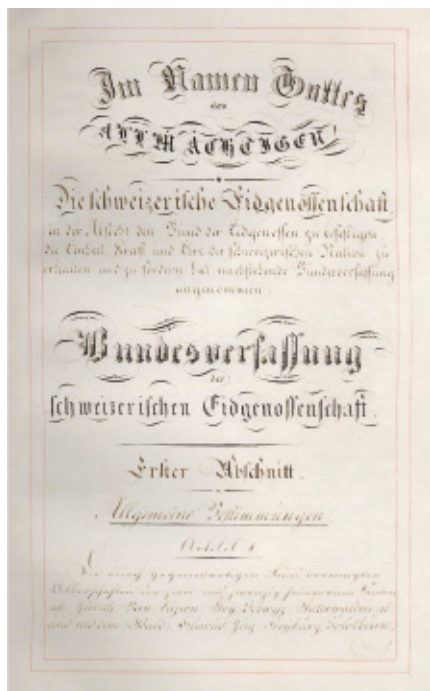 Im Namen Gottes
des
ALLMÄCHTIGEN!
Die schweizerische Eidgenossenschaft,
in der Absicht den Bund der Eidgenossen zu befestigen,
die Einheit, Kraft und Ehre der schweizerischen Nation zu
erhalten und zu fördern, hat nachstehende Bundesverfassung
angenommen:
Bundesverfassung
der
schweizerischen Eidgenossenschaft.
Erster Abschnitt.
Allgemeine Bestimmungen
Artikel 1
Die durch gegenwärtigen Bund vereinigten
Völkerschaften der zwei und zwanzig souveränen Kantone
als: Zürich, Bern, Luzern, Ury, Schwyz, Unterwalden,
und nid dem Wald, Glarus, Zug, Freyburg, Solothurn,